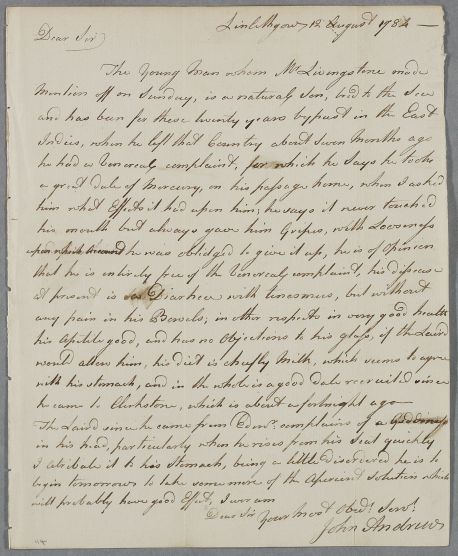 Linlithgow 12 August 1784 —
Dear Sir
The Young Man whom Mr Livingstone made
mention off on Sunday, is a natural Son, bred to the Sea
and has been for these twenty years bypast in the East
Indies, when he left that Country about Seven Months ago
he had a Venereal complaint, for which he says he tooke
a great dale of Mercury, on his passage home, when I asked
him what Effects it had upon him, he says it never touched
his mouth but always gave him Gripes, with Looseness
upon which account he was oblidged to give it up, he is of Opinion
that he is entirely free of the Venereal complaint his disease
at present is Diarhea with tenesmus, but without
any pain in his Bowels; in other respects in very good health
his Apetite good, and has no Objections to his glass, if the Laird
would allow him, his diet is cheifly Milk, which seems to agree
with his stomach, and in the whole is a good dale recruited since
he came to which is about a fortnight ago —
The Laird since he came from Edenr. complains of a Giddiness
in his head, particularly when he rises from his Seat quickly
I atribute it to his stomach, being a little disordered he is to
begin tomorrow to take some more of the Aperient Solution which
will probably have good Effect, I ever am
Dear Sir Your most Obedt. Servt.
John Andrew